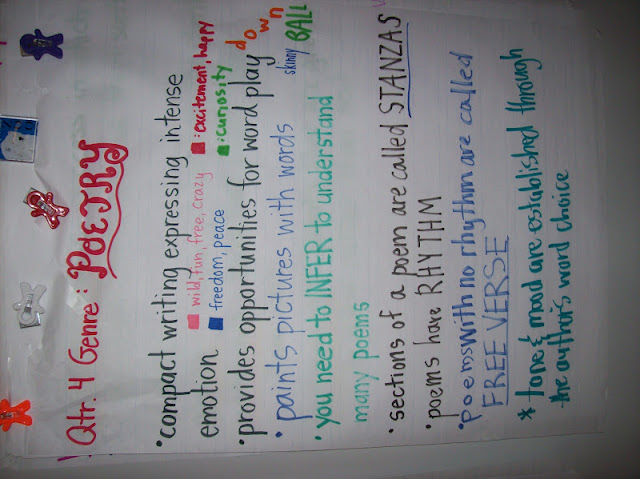 Qtr. 4 Genre: POETRY
• compact writing expressing intense
emotion
: wild, fun, free, crazy
: excitement, happy
: freedom, peace
: curiosity
• provides opportunities for word play down
skinny BALL
• paints pictures with words
• you need to INFER to understand
many poems
• sections of a poem are called STANZAS
• poems have RHYTHM
• poems with no rhythm are called
FREE VERSE
* tone & mood are established through
the author's word choice